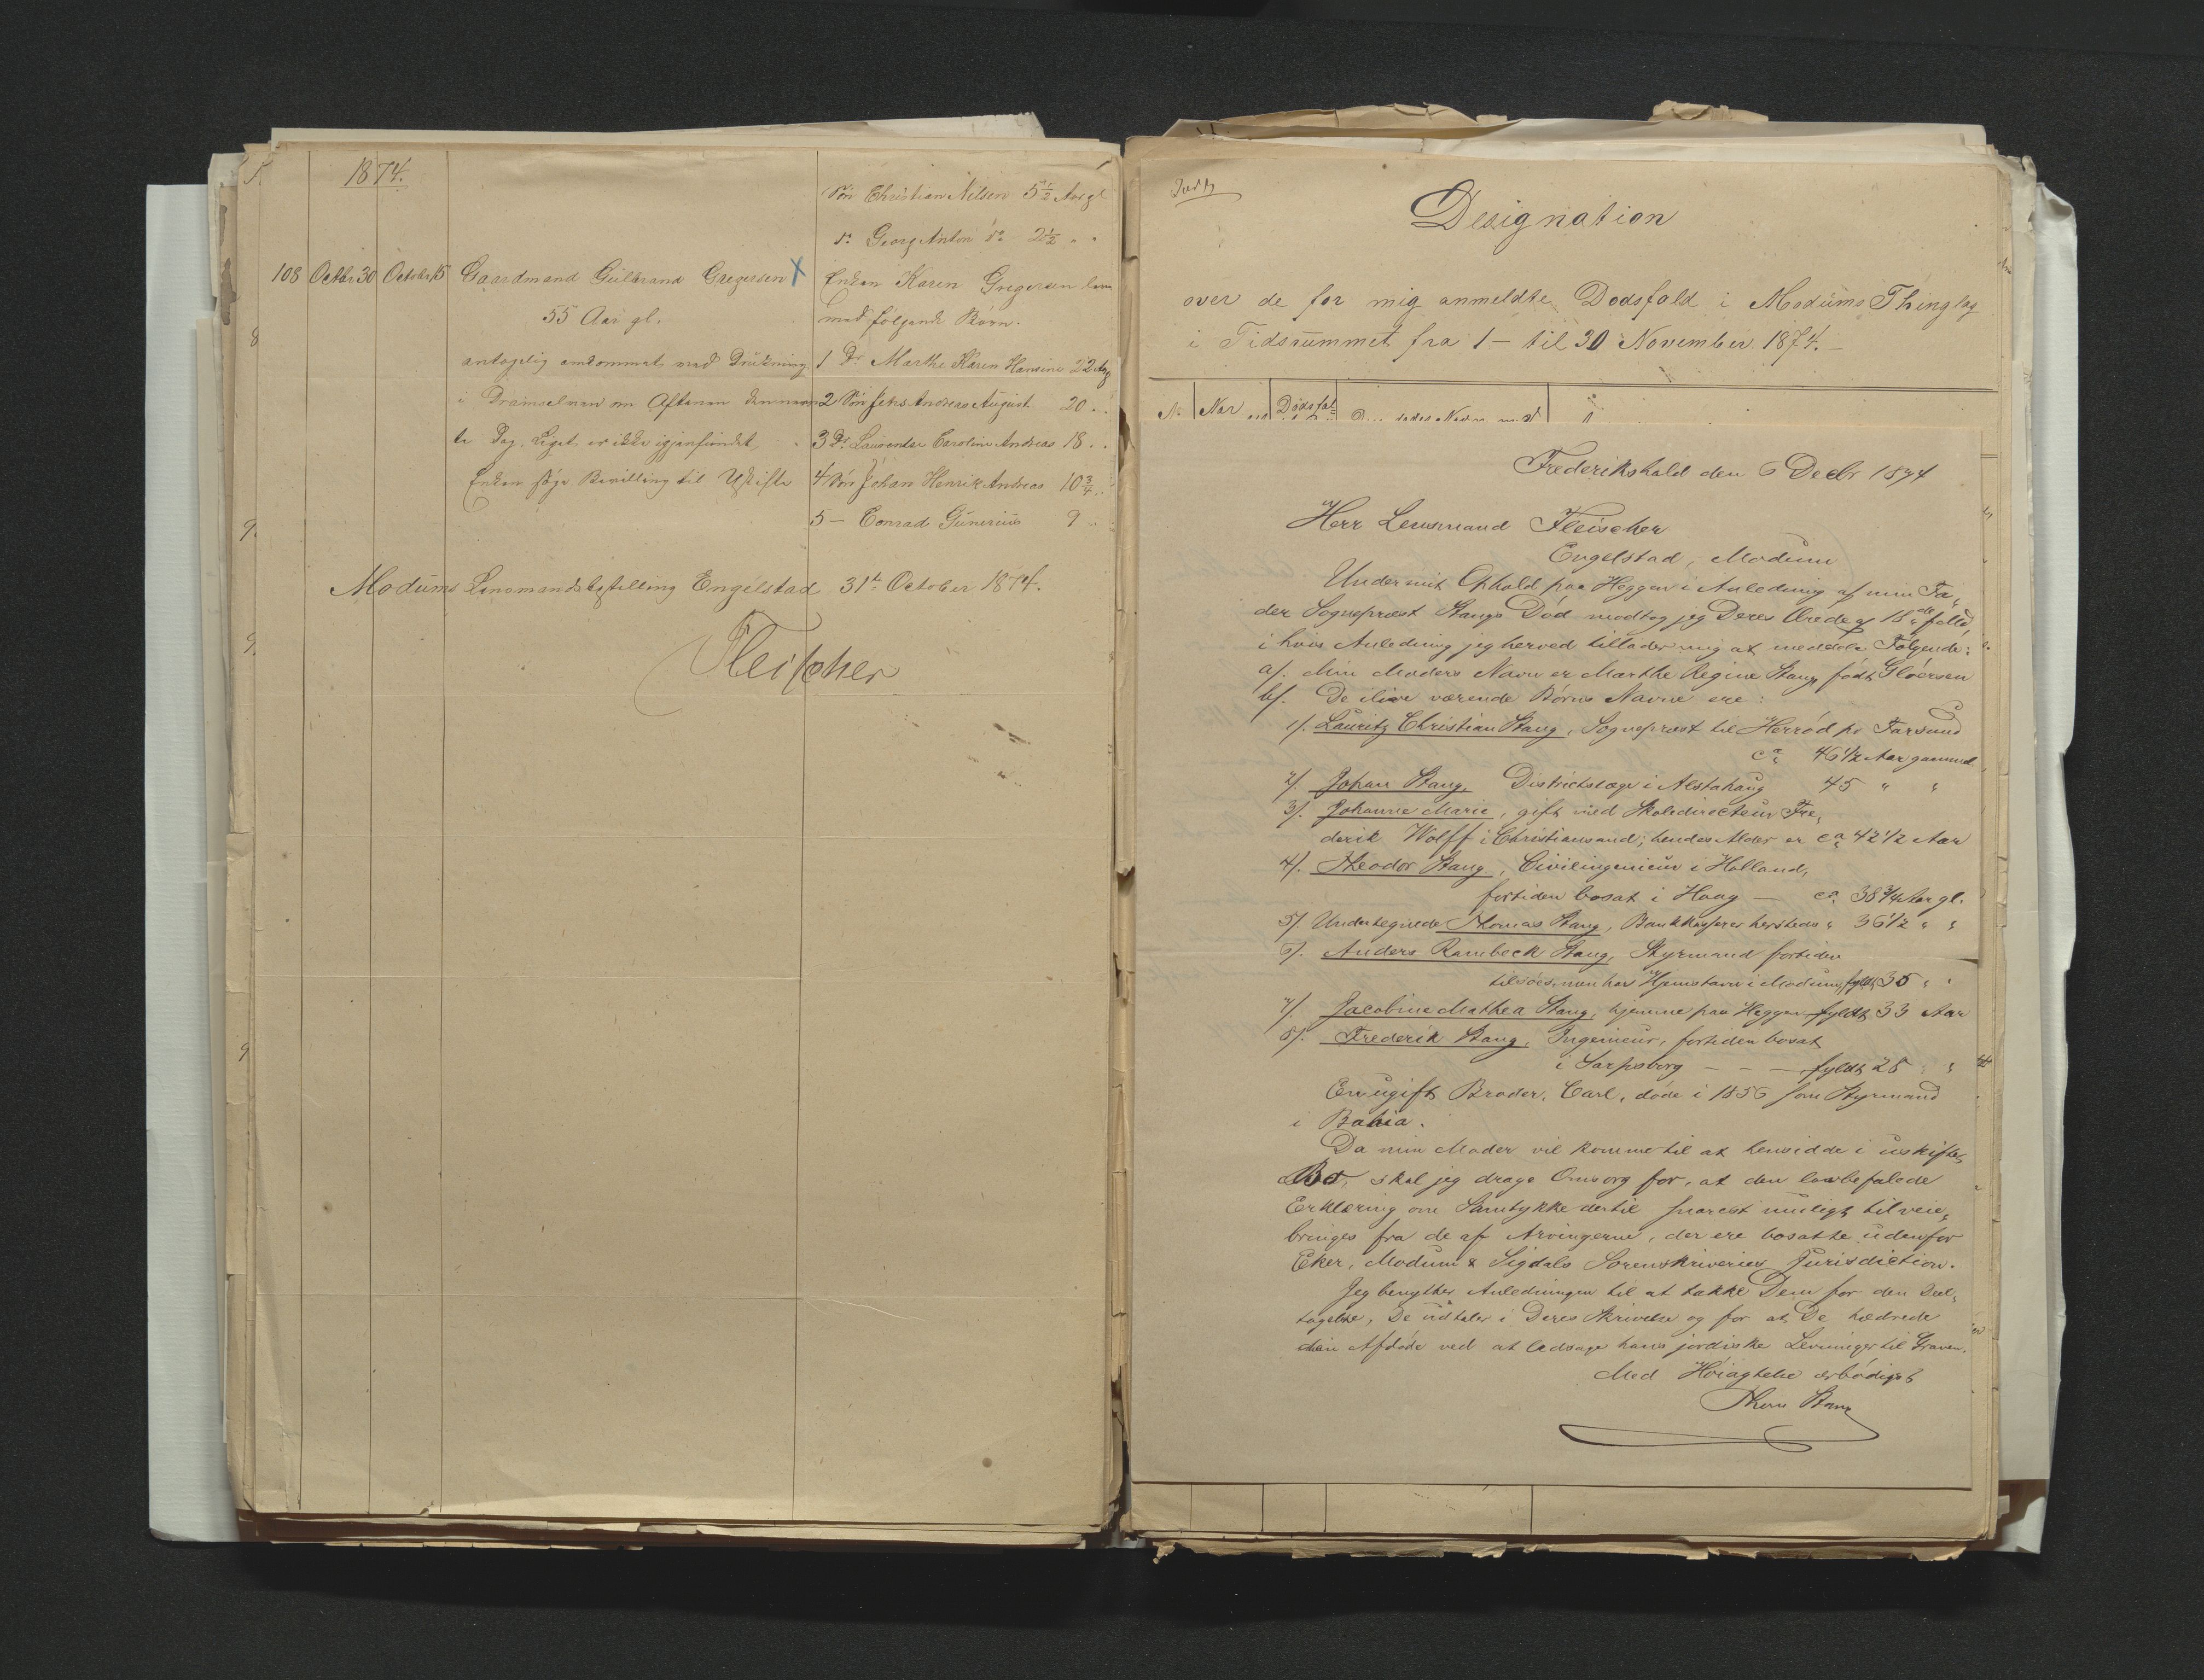 1874.
Søn Christian Nilsen 5½ Aar gl
do Georg Anton do 2½ " "
108 Octbr 30 Octobr 15 Gaardmand Gulbrand Gregersen X Enken Karen Gregersen
55 Aar gl. med følgende Børn.
antagelig omkommet ved Drukning 1 Dr Marthe Karen Hansine 22 Aar
i Dramselven om Aftenen 2 Søn Jens Andreas August 20 "
te Dag. Liget er ikke igjenfundet, 3 Dr. Laurentse Caroline Andreas 18 "
Enken søger Bevilling til Uskifte 4 Søn Johan Henrik Andreas 10¾ "
5 — Conrad Gunerius 9 "
Modums Lensmandsbestilling Engelstad 31te October 1874.
Fleischer
Designation
over de for mig anmeldte Dødsfald i Modums Thinglag
i Tidsrummet fra 1 – til 30 November 1874. –
No Naar Dødsfal
Frederikshald den 6 Decbr 1874
Herr Lensmand Fleischer
Engelstad, Modum
Under mit Ophold paa Heggen i Anledning af min Fa,
der Sognepræst Stangs Død modtog jeg Deres Ærede af 18de
i hvis Anledning jeg herved tillader mig at meddele Følgende:
a/. Min Moders Navn er Marthe Regine Stang født Gløersen
b/. De ilive værende Børns Navne ere:
1/. Lauritz Christian Stang, Sognepræst til Herrød pr Farsund
ca 46 1/2 Aar gammel
2/. Johan Stang, Districtslæge i Alstahaug 45 " "
3/. Johanne Marie, gift med Skoledirecteur Fre,
derik Wolff i Christiansand; hendes Alder er ca 42 1/2 Aar
4/. Theodor Stang, Civilingenieur i Holland,
fortiden bosat i Haag — ca 38 3/4 Aar gl.
5/. Undertegnede Thomas Stang, Bankkasserer hersteds " 36 1/2 " "
6/. Anders Rambeck Stang, Styrmand fortiden
tilsøes, men har Hjemstavn i Modum, fyldt 35 " "
7/. Jacobine Mathea Stang, hjemme paa Heggen fyldt 33 Aar
8/. Frederik Stang, Ingenieur, fortiden bosat
i Sarpsborg – – – fyldt 25 " "
En ugift Broder, Carl, døde i 1856 som Styrmand
i Bahia.
Da min Moder vil komme til at hensidde i uskiftet
Bo, skal jeg drage Omsorg for, at den lovbefalede
Erklæring om Samtykke dertil snarest muligt tilveie,
bringes fra de af Arvingerne, der ere bosatte udenfor
Eker, Modum & Sigdals Sorenskriveries Jurisdiction.
Jeg benytter Anledningen til at takke Dem for den Deel,
tagelse, De udtaler i Deres Skrivelse og for at De hædrede
den Afdøde ved at ledsage hans jordiske Levninger til Graven.
Med Høiagtelse ærbødigst
Thom Stang